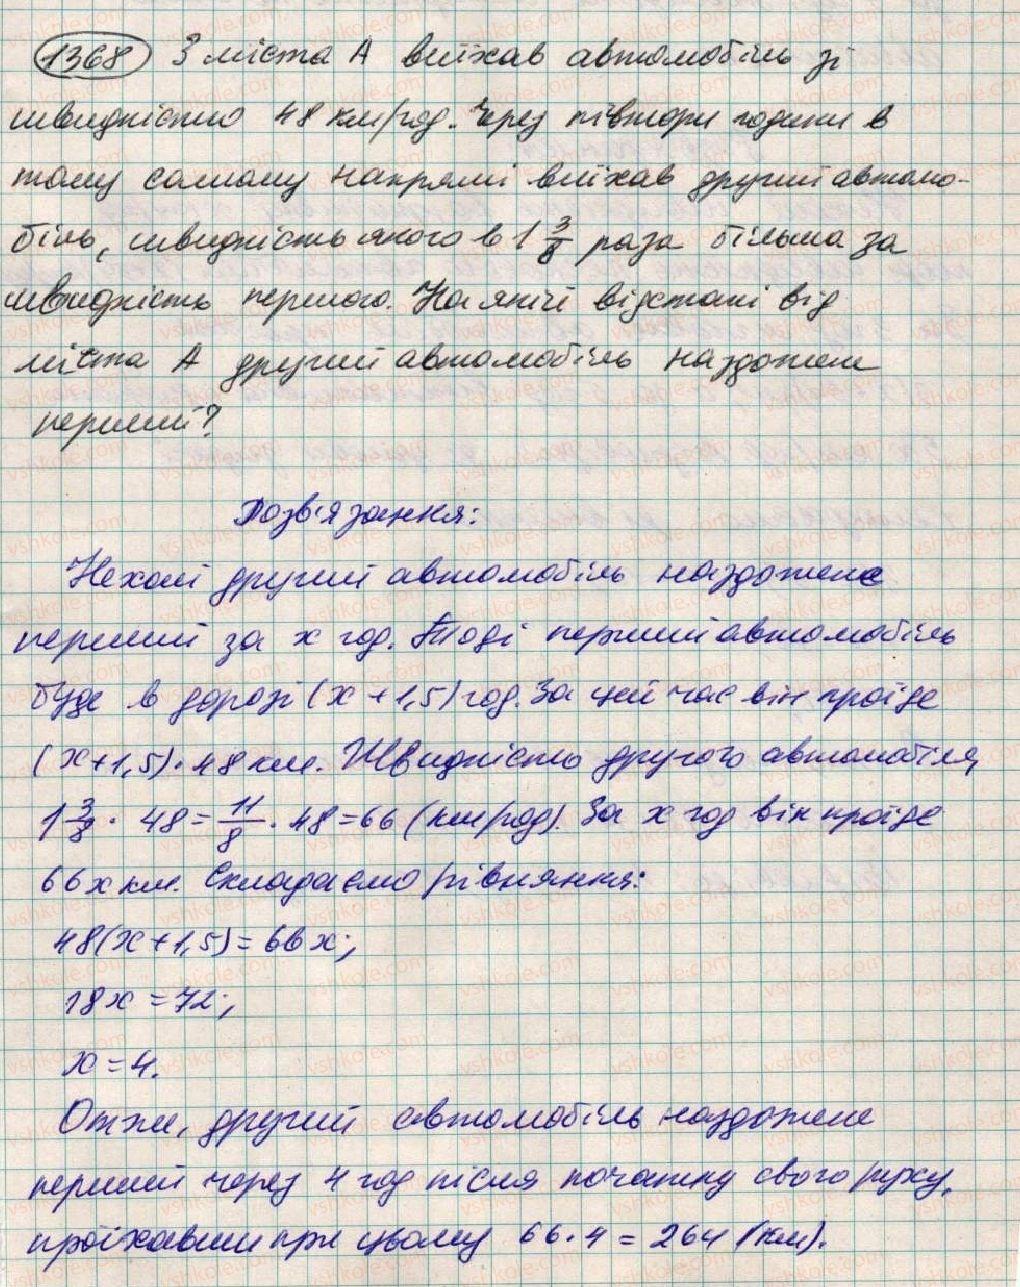 1368 З міста А виїхав автомобіль зі
швидністю 48 км/год. Через півтори години в
тому самому напрямі виїхав другий автомо-
біль, швидність якого в 1 3/8 раза більша за
швидність першого. На якій відстані від
міста А другий автомобіль наздожене
перший?
Розв'язання:
Нехай другий автомобіль наздожене
перший за х год. Тоді перший автомобіль
буде в дорозі (х + 1,5) год. За цей час він проїде
(х+1,5)·48 км. Швидністю другого автомобіля
1 3/8 · 48 = 11/8 · 48 = 66 (км/год). За х год він проїде
66х км. Складаємо рівняння:
48(х+1,5)=66х;
18х = 72;
х = 4.
Отже, другий автомобіль наздожене
перший через 4 год після початку свого руху,
проїхавши при цьому 66·4 = 264 (км).